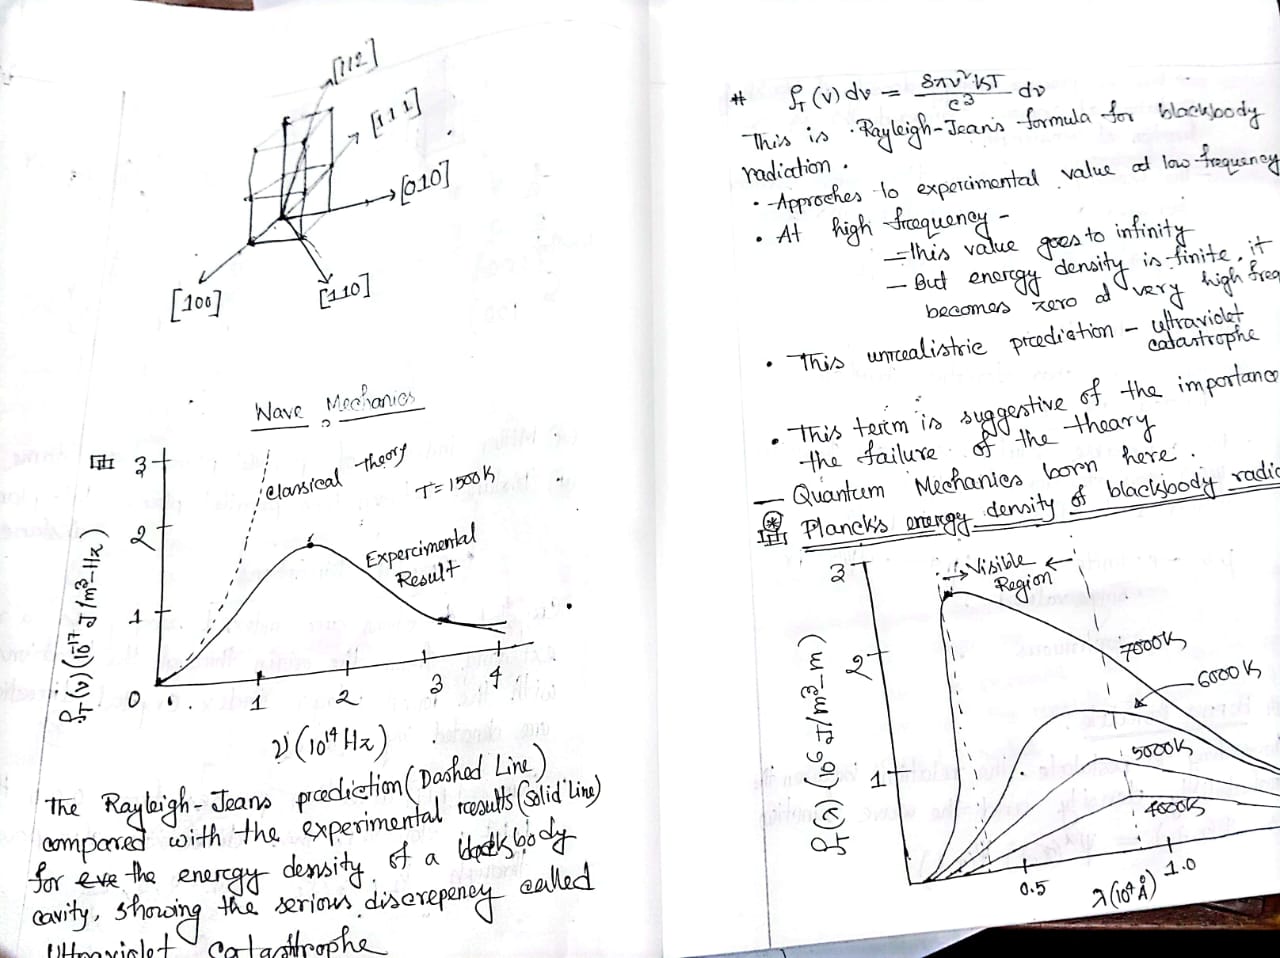 [112]
[111]
[010]
[100]
[110]
Wave Mechanics
3
classical theory
T = 1500K
2
Expercimental
Result
1
0
1
2
3
4
ρ_T(ν)(10^17 J/m^3-Hz)
ν(10^14 Hz)
The Rayleigh-Jeans prediction (Dashed Line)
compared with the experimental results (solid line)
for eve the energy density of a blackbody
cavity, showing the serious discrepency called
Ultraviolet catastrophe
* ρ_T(ν)dν = 8πν²KT/c³ dν
This is Rayleigh-Jeans formula for blackbody
radiation.
• Approches to experimental value at low frequency
• At high frequency -
- This value goes to infinity
- But energy density is finite, it
becomes zero at very high freq
• This unrealistric prediction - ultraviolet
catastrophe
• This term is suggestive of the importance
the failure of the theary
- Quantum Mechanics born here.
Planck's energy density of blackbody radia
3
Visible
Region
2
7000K
6000K
5000K
1
4000K
0.5
1.0
λ(10^4 Å)